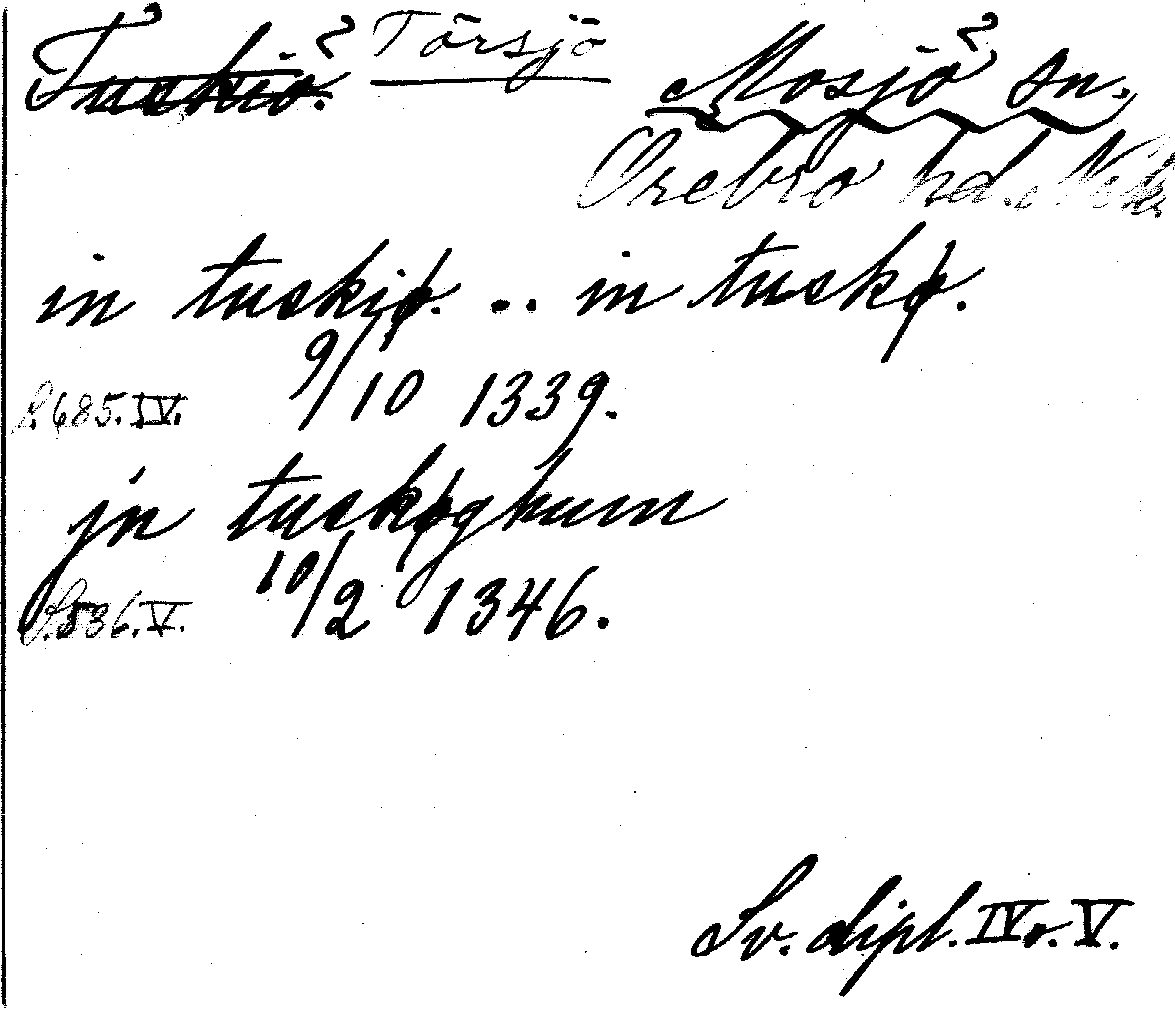 Tuskiö? Törsjö Mosjö? sn.
Örebro hd. Nke
in tuskiø. .. in tuskø.
S. 685. IV. 9/10 1339.
jn tuskøghum
S. 536. V. 10/2 1346.
Sv. dipl. IV o. V.